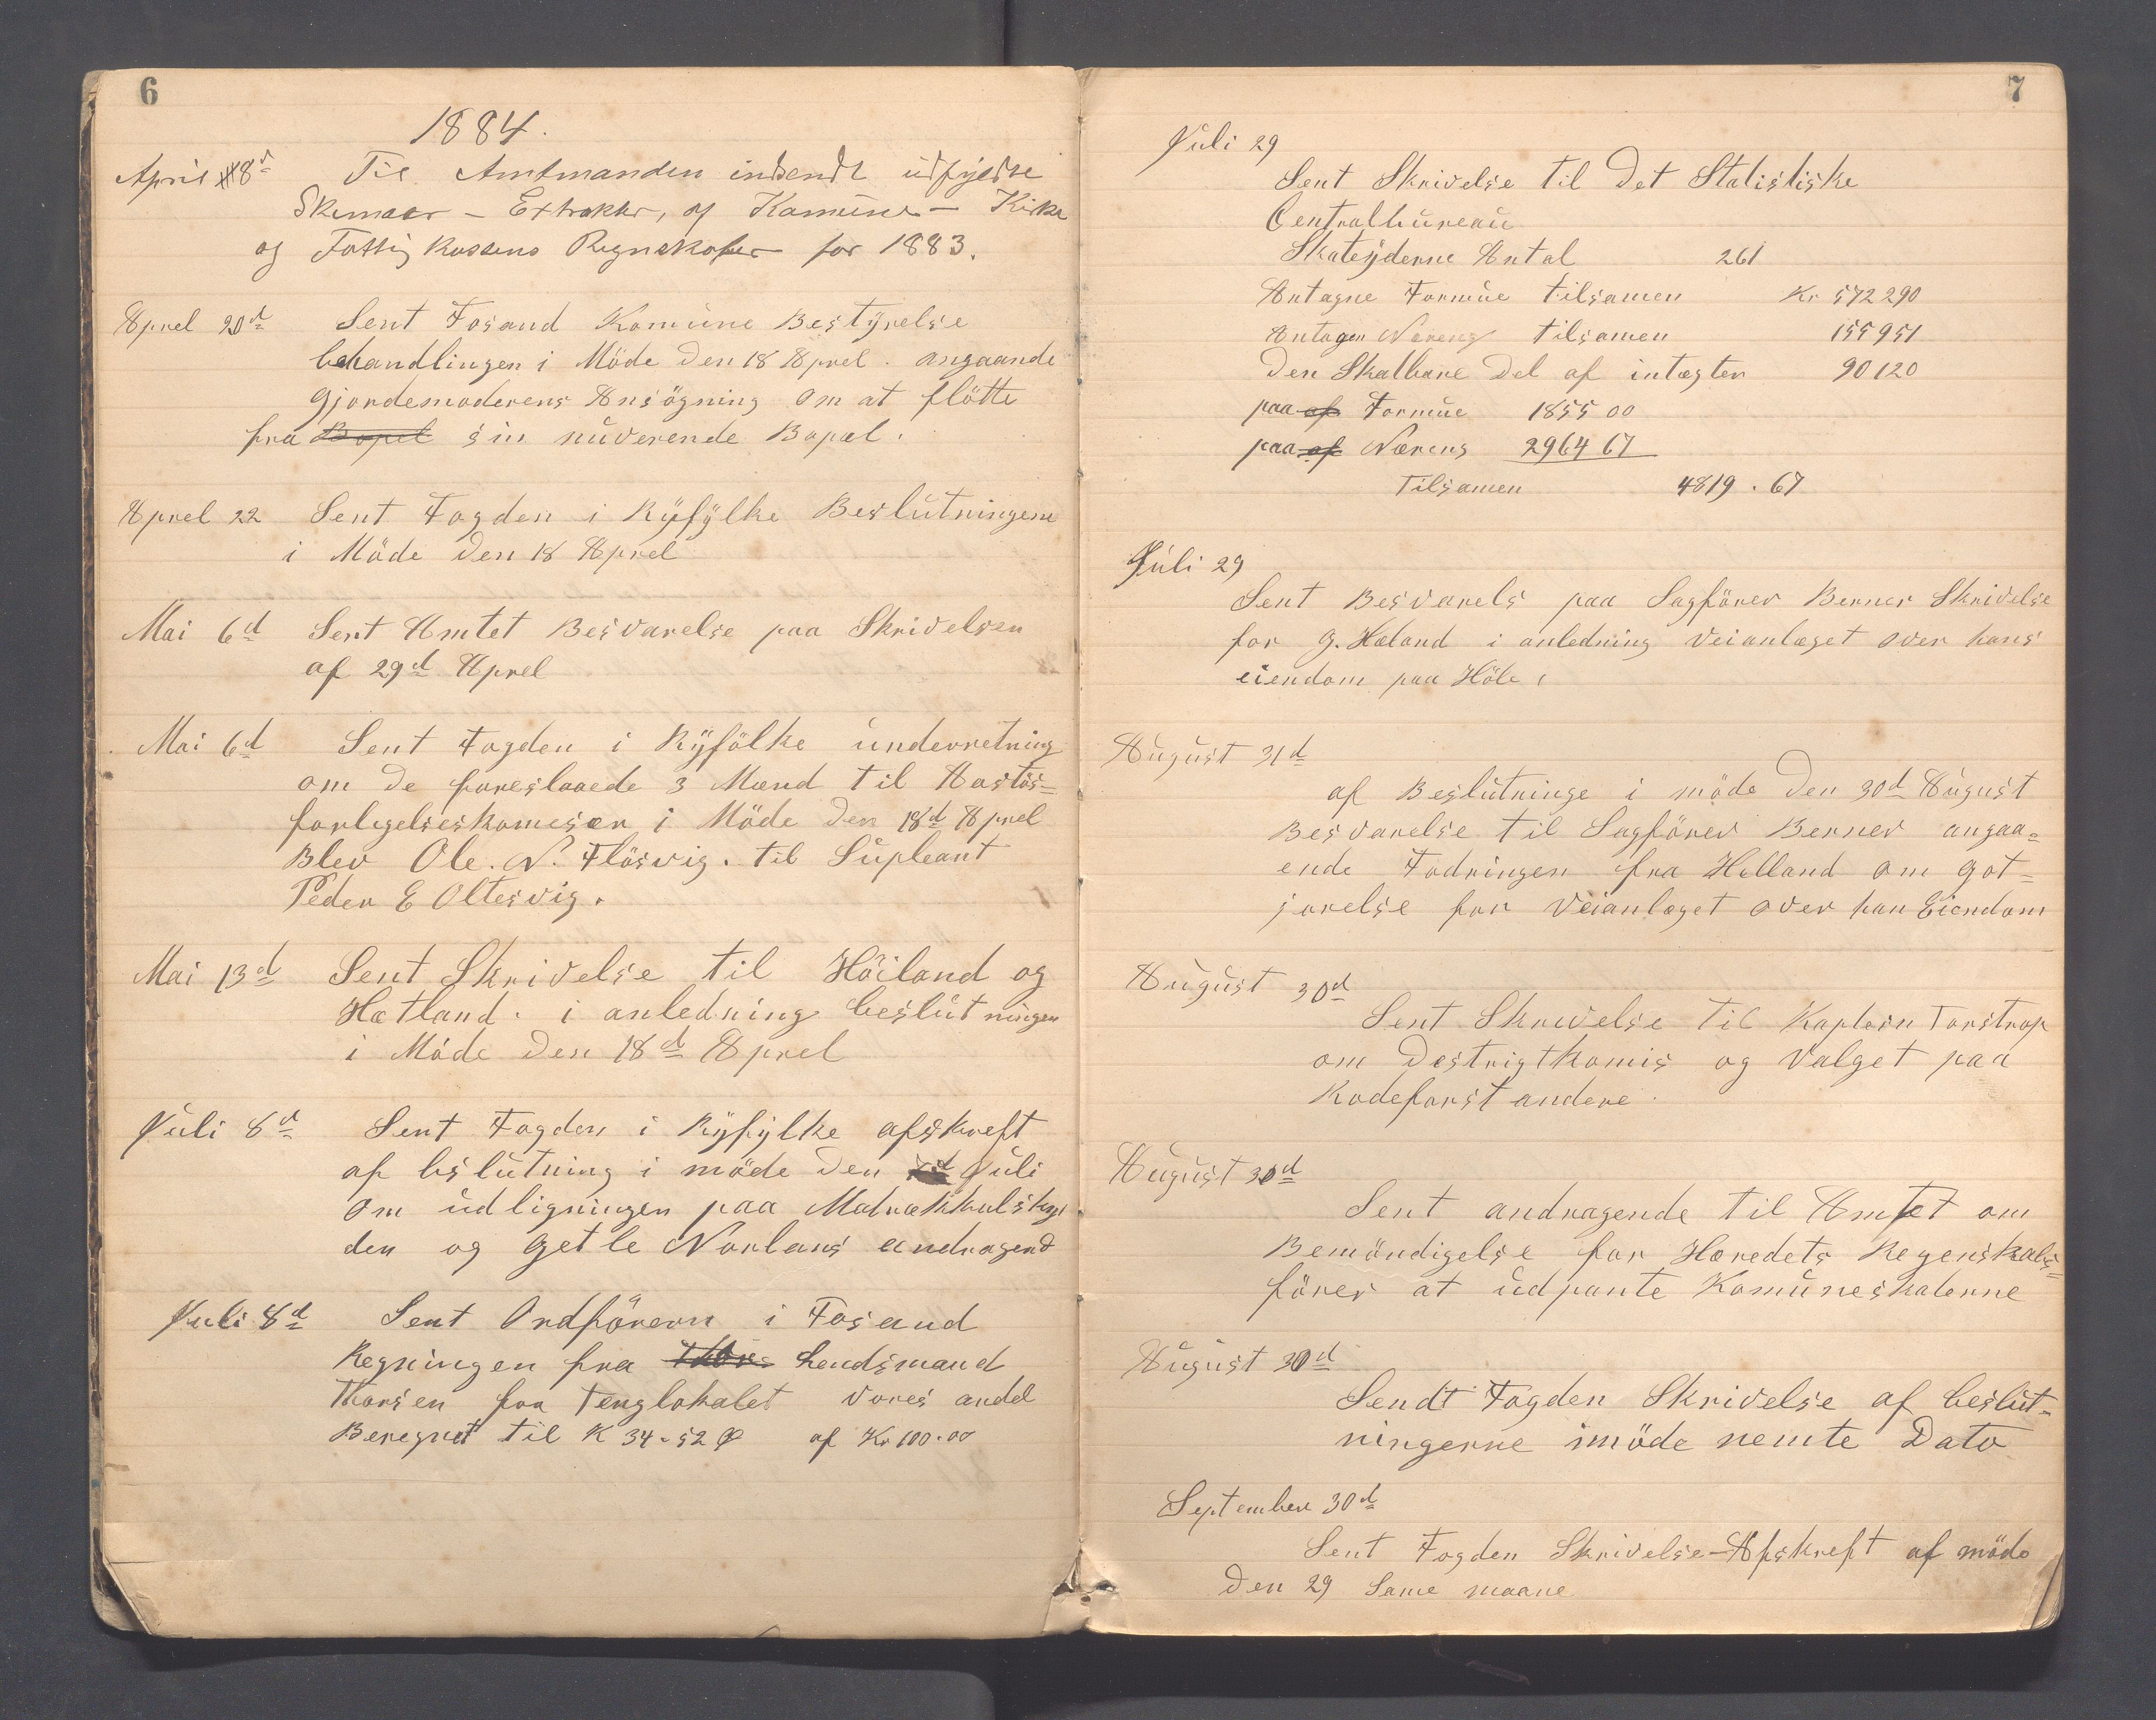 6
1884.
April 8d Til Amtmanden indsendt udfyldte
Skemaer – Extrakter, af Kamune – Kirke
og Fattig Kassens Regnskaber for 1883.
Aprel 20d Sent Fosand Komune Bestyrelse
behandlingen i Möde den 18 Aprel . angaande
Gjordemoderens Ansögning om at flötte
fra Bopel sin nuverende Bopæl.
Aprel 22 Sent Fogden i Ryfylke Beslutningene
i Möde den 18 Aprel
Mai 6d Sent Amtet Besvarelse paa Skrivelsen
af 29d Aprel
Mai 6d Sent Fogden i Ryfölke underretning
om de foreslaaede 3 Mænd til
forligelseskomesen i Möde den 18d Aprel
Blev Ole. N. Flösvig. til Supleant
Peder E Oltesvig.
Mai 13d Sent Skrivelse til Höiland og
Hætland . i anledning beslutningen
i Möde den 18d Aprel
Juli 8d Sent Fogden i Ryfylke afskreft
af bslutning i möde den Juli
om udligningen paa Matrækkulskyl
den og Getle Norlans andragend
Juli 8d Sent Ordförern i Fosand
Regningen fra Lendsmand
Thorsen for Tenglokalet vores andel
Beregnet til K 34-52 Ø af Kr 100.00
7
Juli 29
Sent Skrivelse til Det Statistiske
Centralbureau
Skateyderne Antal 261
Antagne Formue tilsamen Kr 572290
Antagen Nærens tilsamen 155951
Den Skatbare Del af intægten 90120
paa af Formue 1855 00
paa af Nærens 2964 67
Tilsamen 4819 . 67
Juli 29
Sent Besvarels paa Sagförer Berner Skrivelse
for G. Hæland i anledning Veianlæget over hans
eiendom paa Höle.
August 31d
af Beslutninge i möde den 30d August
Besvarelse til Sagförer Berner angaa=
ende Fodringen fra Helland om got=
jorelse for Veianlæget over han Eiendom
August 30d
Sent Skrivelse til Kaptein Torstrop
om Destrigtkomis og Valget paa
Rodeforstandere.
August 30d
Sent andragende til Amtet om
Bemöndigelse for Heredets Regenskabs=
förer at udpante Komuneskaterne
August 30d
Sendt Fogden Skrivelse af beslut=
ningerne imöde nemte Dato
September 30d
Sent Fogden Skrivelse–Afskreft af möde
den 29 Same maane